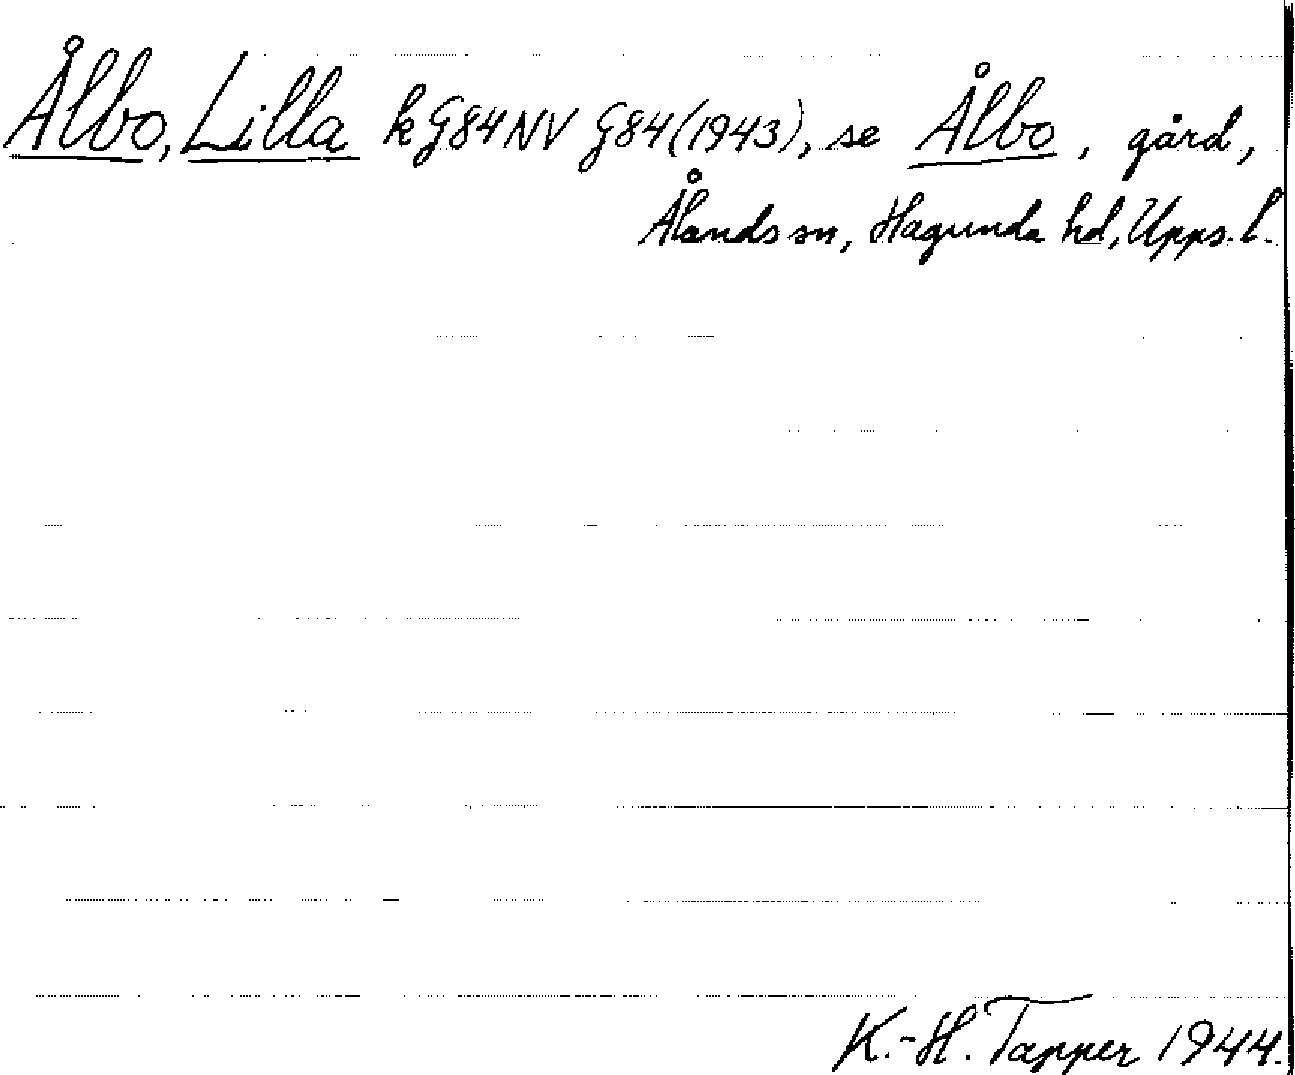 Ålbo, Lilla k G84NV G84(1943), se Ålbo, gård,
Ålands sn, Hagunda hd, Upps. l.
K.-H. Tapper 1944.